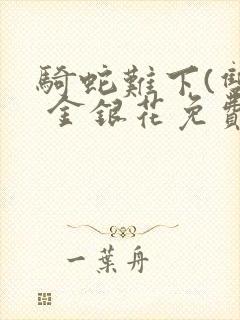 騎蛇難下(雙
金銀花免費
一葉舟